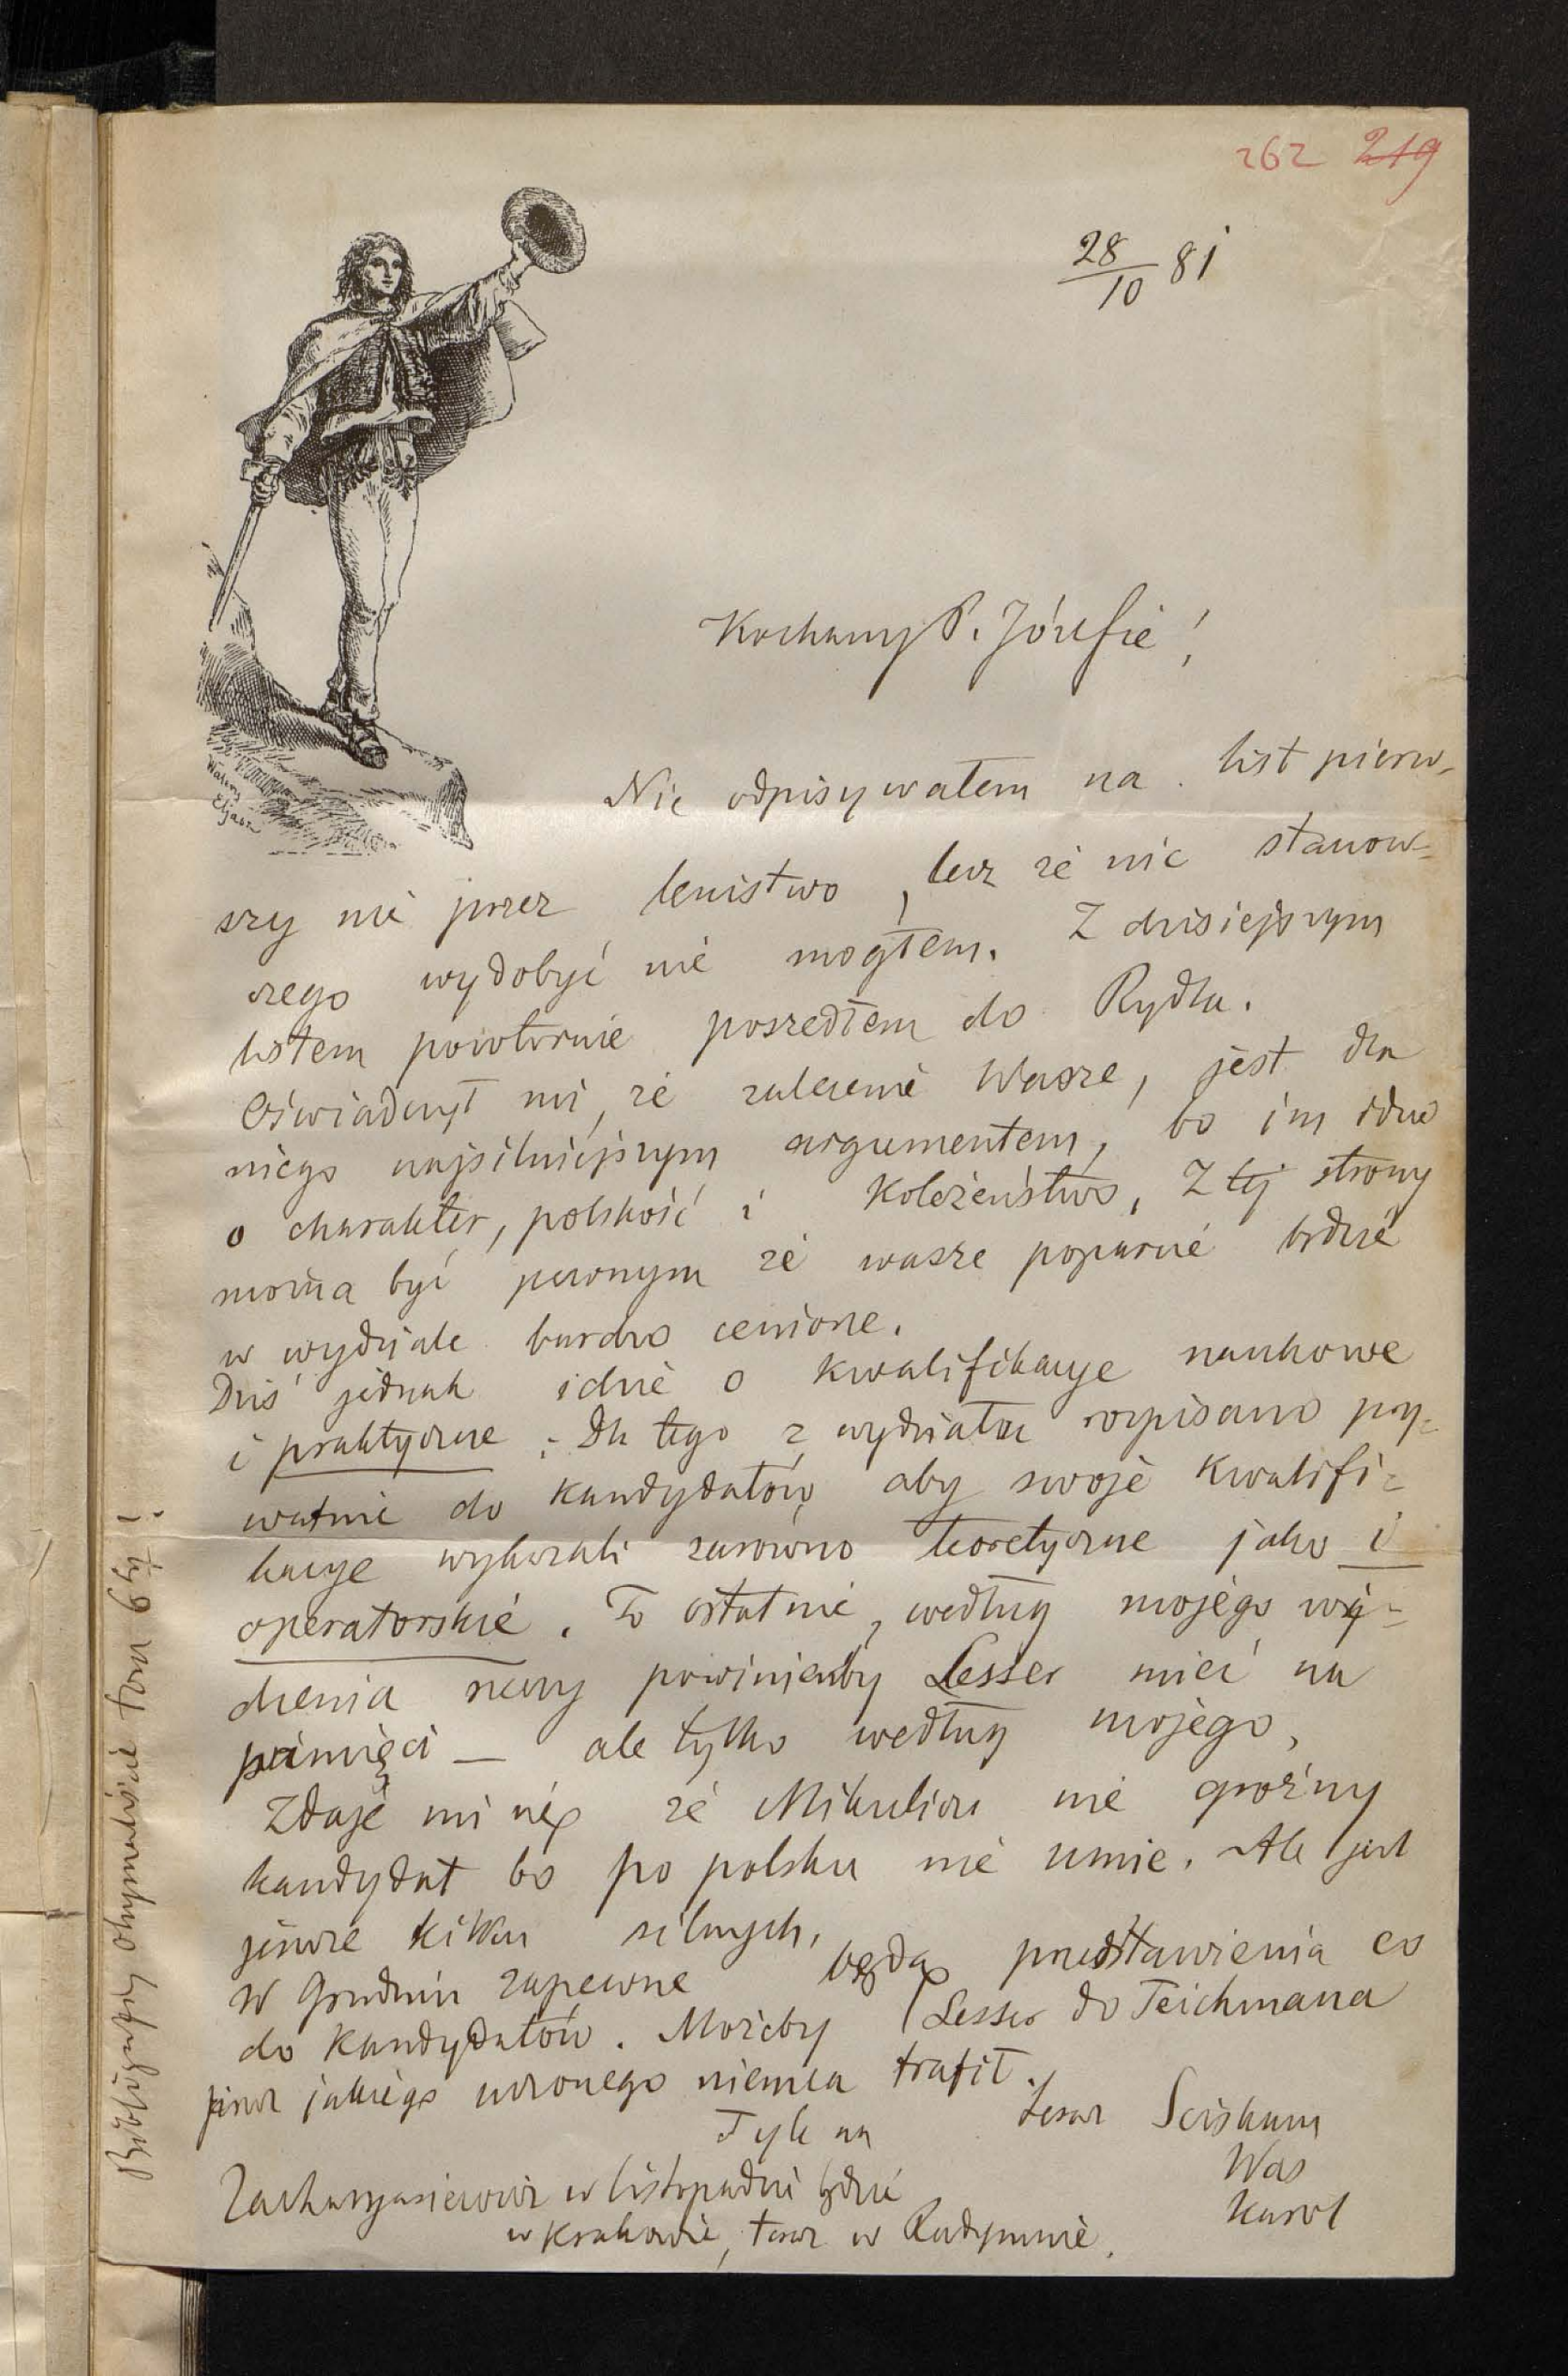 262 219
28/10 81
Kochany P. Józefie!
Nie odpisywałem na list pierw-
szy nie przez lenistwo, lecz że nic stanow-
czego wydobyć nie mogłem. Z dzisiejszym
listem powtórnie poszedłem do Rydla.
Oświadczył mi, że zalecenie Wasze, jest dla
niego najsilniejszym argumentem, bo im idzie
o charakter, polskość i Koleżeństwo, Z tej strony
można być pewnym że wasze poparcie będzie
w wydziale bardzo cenione.
Dziś jednak idzie o kwalifikacye naukowe
i praktyczne. Dla tego z wydziału rozpisano pry-
watnie do kandydatów aby swoje kwalifi-
kacye wykazali zarówno teoretyczne jako i
operatorskie. To ostatnie, według mojego wi-
dzenia rzeczy powinienby Lesser mieć na
pamięci — ale tylko według mojego,
Zdaje mi się że Mikulicz nie groźny
kandydat bo po polsku nie umie. Ale jest
jeszcze kilku silnych,
W Grudniu zapewne będą przedstawienia co
do kandydatów. Możeby Lesser do Teichmana
przez jakiego uczonego niemca trafił.
Tyle na teraz Sciskam
Was
Karol
Zacharyasiewicz w listopadzie będzie
w Krakowie, teraz w Radymnie.
Bibliografii otrzymaliście tom 6ty!
Walery
Eljasz